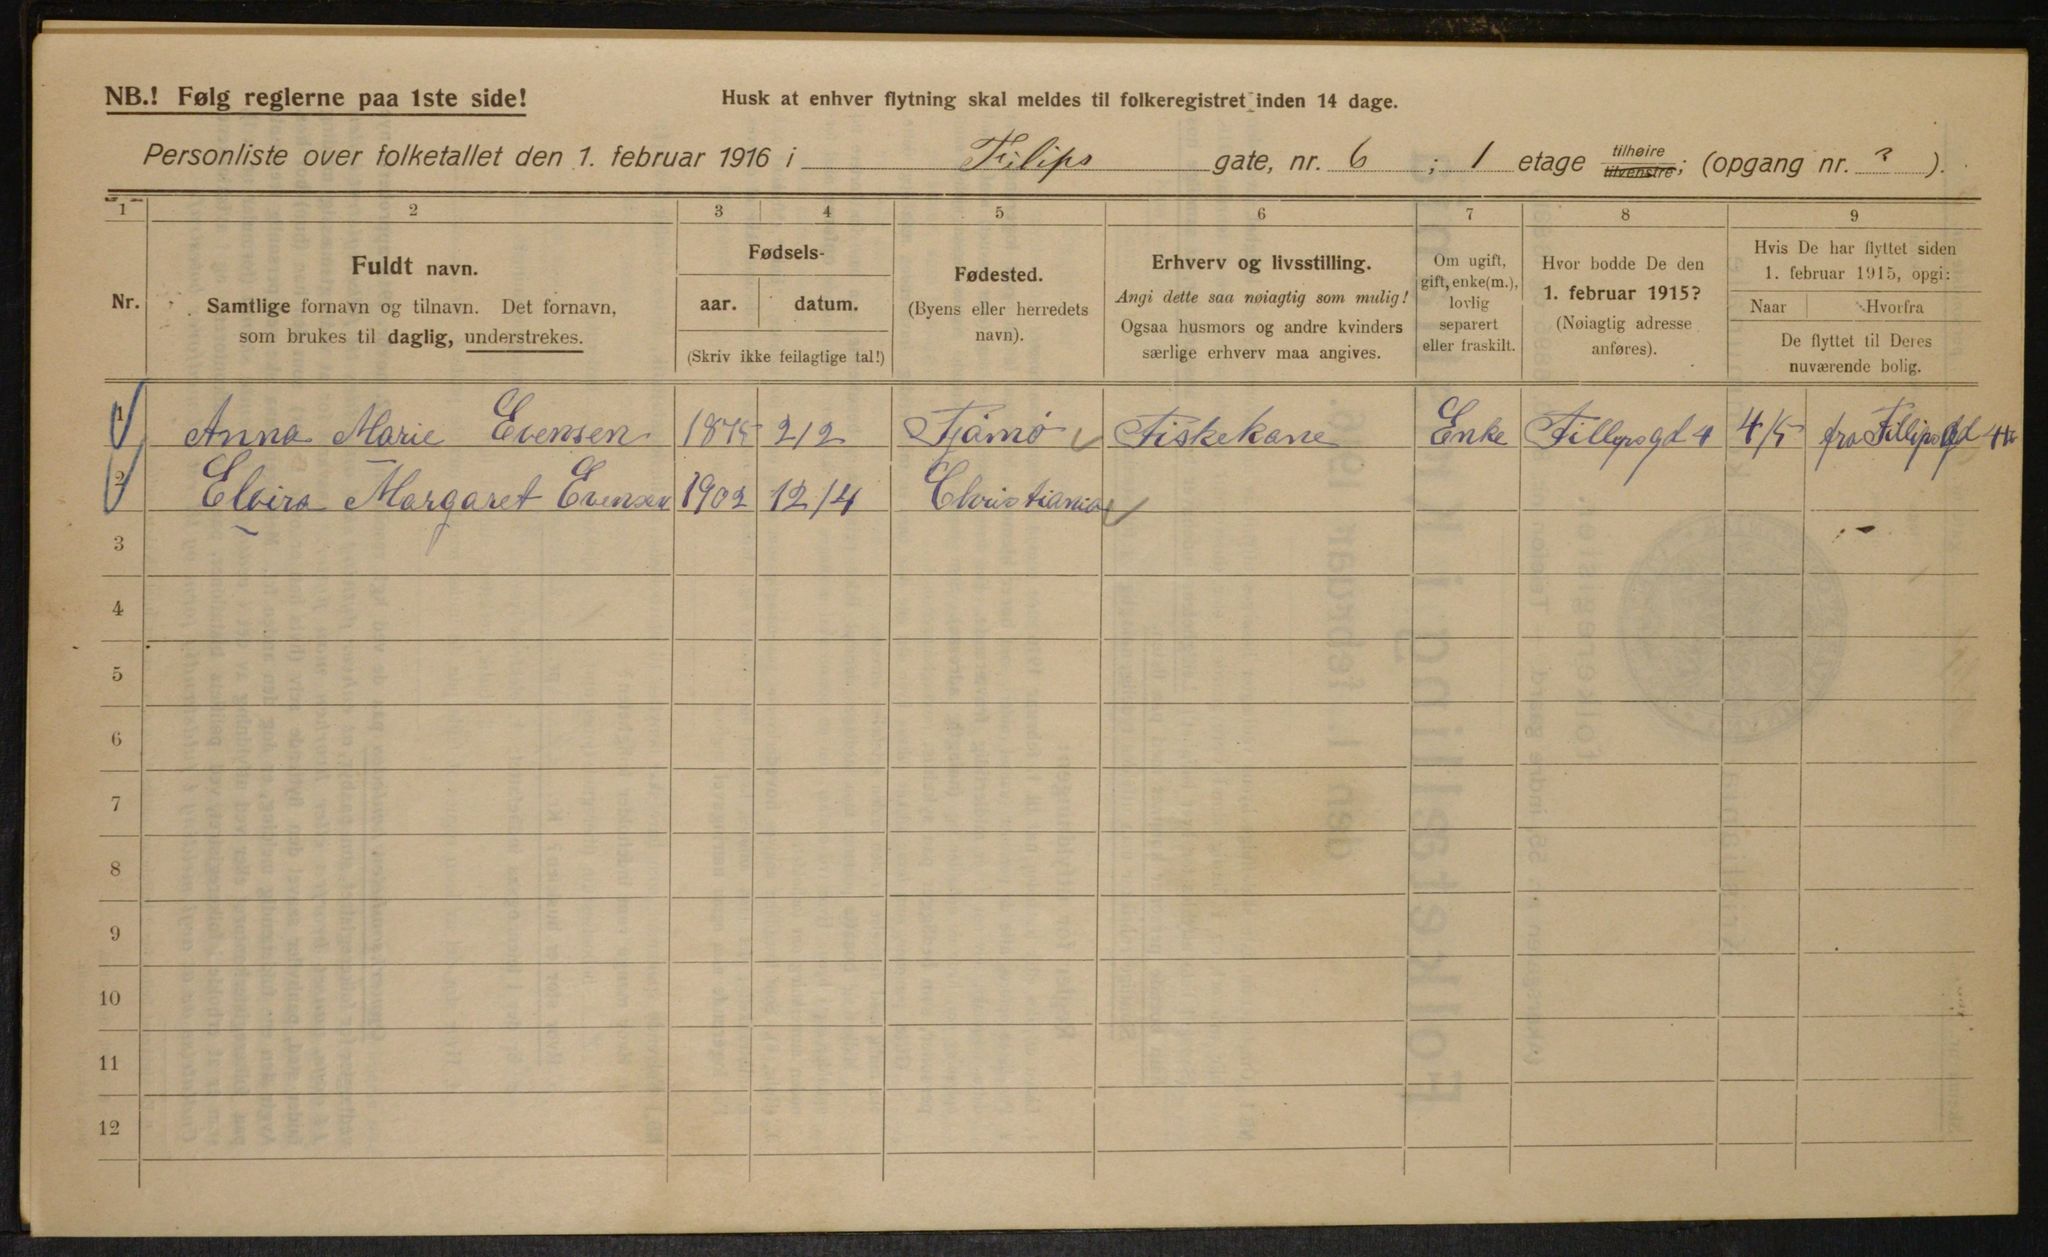 NB.! Følg reglerne paa 1ste side!
Husk at enhver flytning skal meldes til folkeregistret inden 14 dage.
Personliste over folketallet den 1. februar 1916 i Filips gate, nr. 6 ; 1 etage tilhøire tilvenstre; (opgang nr. ? ).
1 2 3 4 5 6 7 8 9
Nr.
Fuldt navn.
Samtlige fornavn og tilnavn. Det fornavn,
som brukes til daglig, understrekes.
Fødsels-
aar. datum.
(Skriv ikke feilagtige tal!)
Fødested.
(Byens eller herredets
navn).
Erhverv og livsstilling.
Angi dette saa nøiagtig som mulig!
Ogsaa husmors og andre kvinders
særlige erhverv maa angives.
Om ugift,
gift, enke(m.),
lovlig
separert
eller fraskilt.
Hvor bodde De den
1. februar 1915?
(Nøiagtig adresse
anføres).
Hvis De har flyttet siden
1. februar 1915, opgi:
Naar Hvorfra
De flyttet til Deres
nuværende bolig.
1 Anna Marie Evensen 2/2 Tjømø Fiskekone Enke Fillipsgd 4 4/5 fra Fillipsgd 4
2 Elvira Margaret Evensen 1902 12/4 Christiania
3
4
5
6
7
8
9
10
11
12